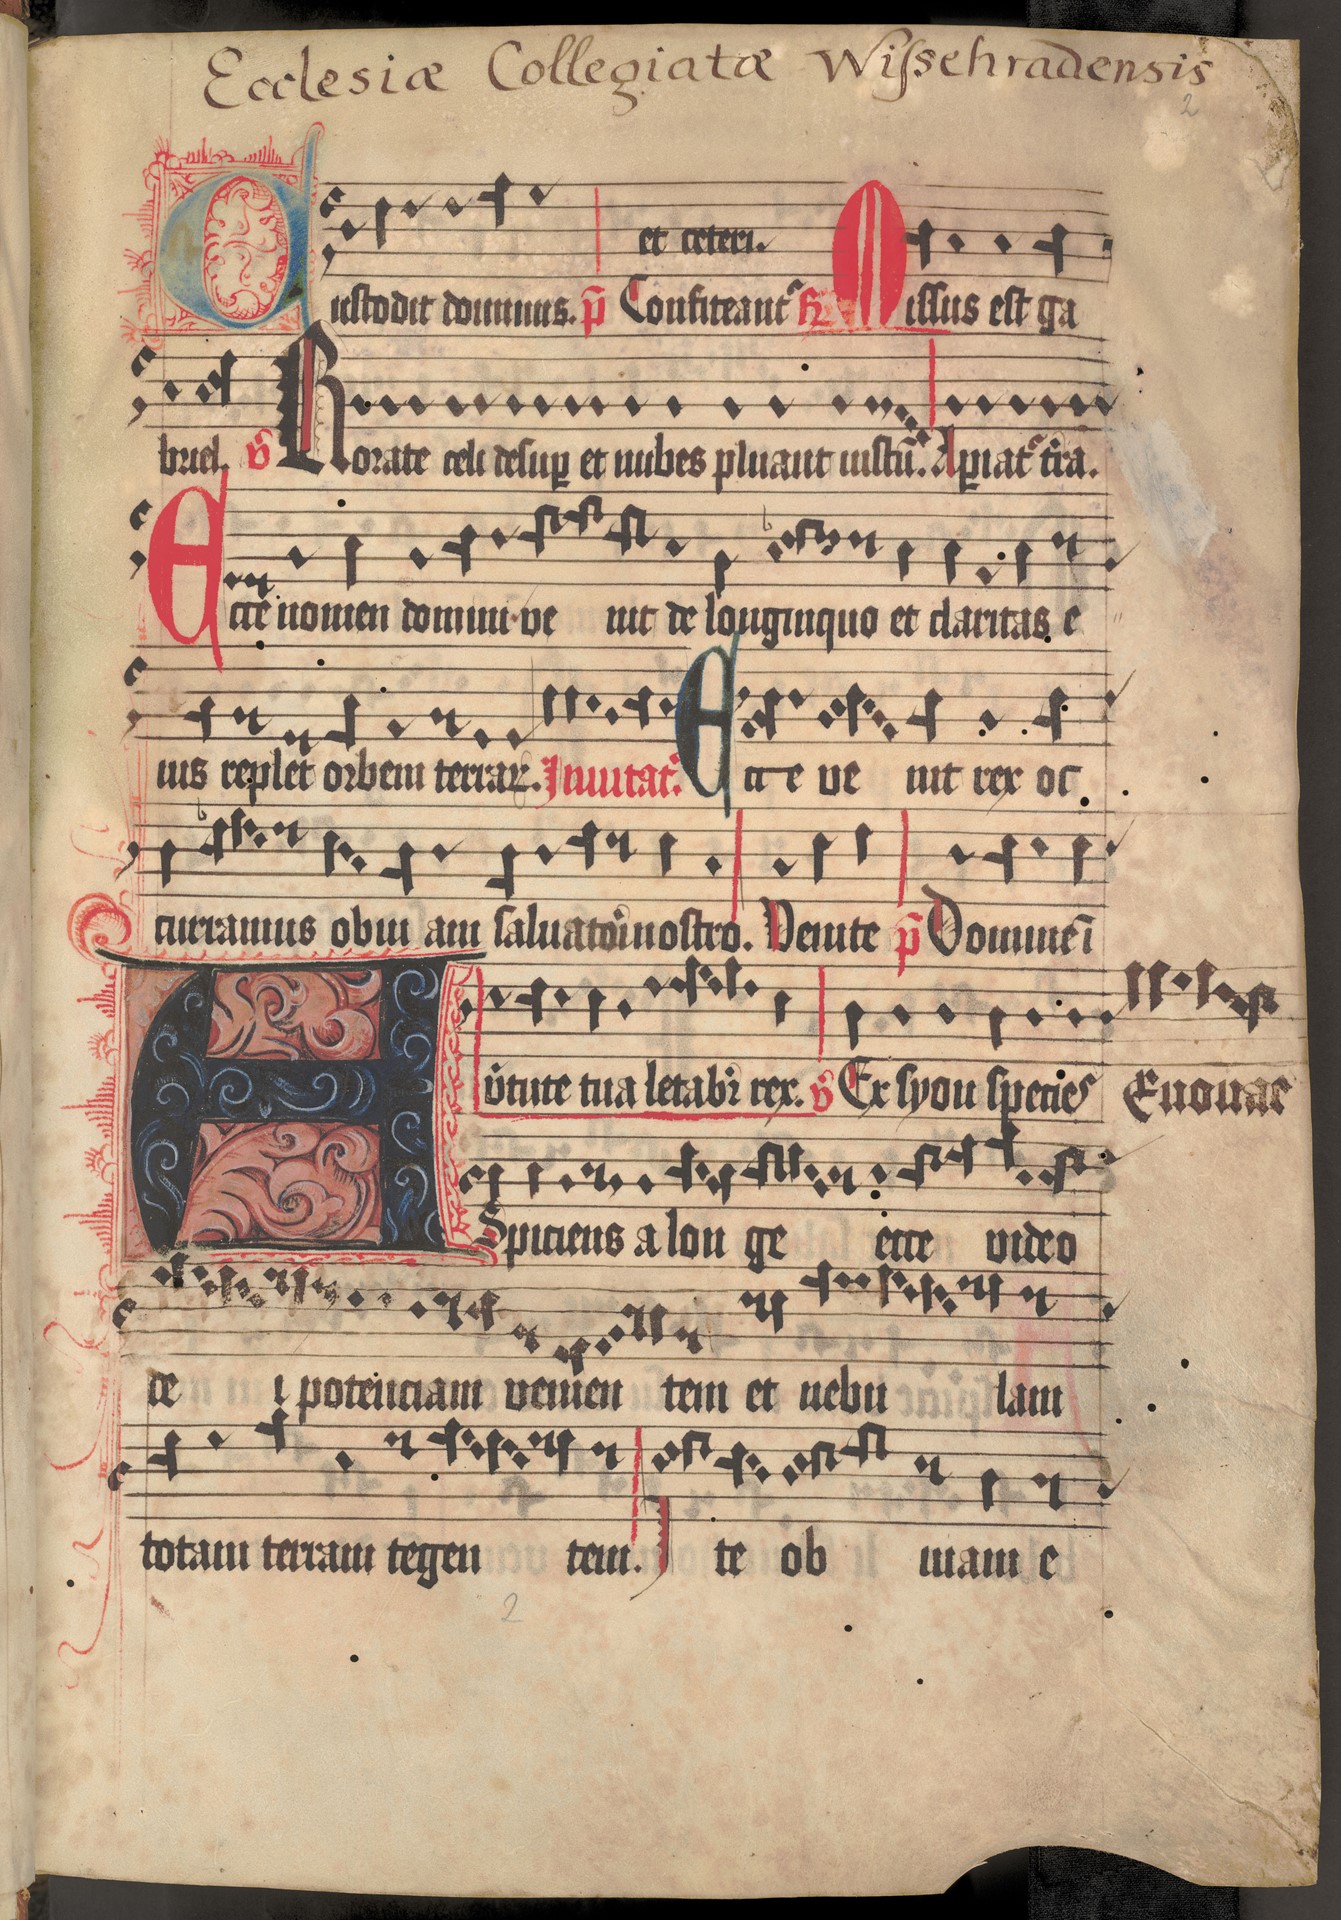 Ecclesiæ Collegiatæ Wiſsehradensis
2
et ceteri.
Custodit dominus. p̄ Confiteant᷑ Missus est ga
briel. v̄ Rorate celi desuꝑ et nubes pluant iustū. Aꝑiat᷑ t̄ra.
Ecce nomen domini ve nit de longinquo et claritas e
ius replet orbem terraꝝ. Inuitat᷑. Ecce ve nit rex oc
curramus obui am saluatori nostro. Venite p̄ Domine ī
v̄tute tua letabr̄ rex. v̄ Ex syon species Euouae
Aspiciens a lon ge ecce video
de i potenciam venien tem et nebu lam
totam terram tegen tem. I te ob uiam e
2